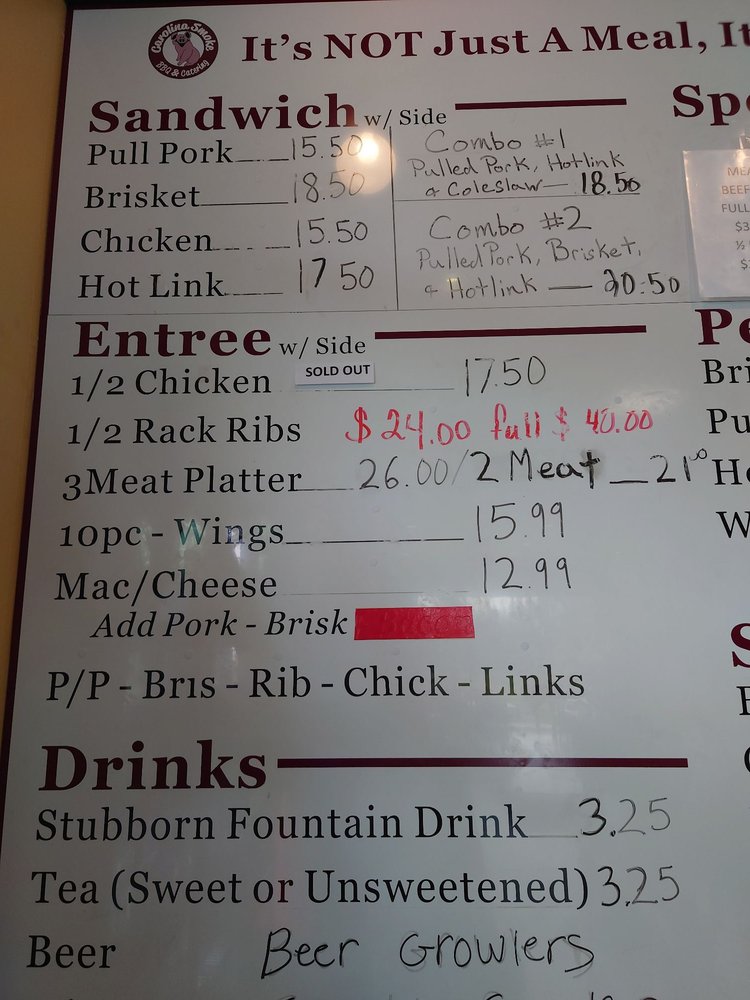 Carolina Smoke
BBQ & Catering
It's NOT Just A Meal, It
Sandwich w/ Side
Pull Pork 15.50
Brisket 18.50
Chicken 15.50
Hot Link 17 50
Combo #1
Pulled Pork, Hotlink
& Coleslaw — 18.50
Combo #2
Pulled Pork, Brisket,
& Hotlink — 20.50
Spe
BEEF
FULL
$3
½
Entree w/ Side
1/2 Chicken SOLD OUT 17.50
1/2 Rack Ribs $24.00 full $40.00
3Meat Platter 26.00/2 Meat — 21⁰⁰
10pc - Wings 15.99
Mac/Cheese 12.99
Add Pork - Brisk
P/P - Bris - Rib - Chick - Links
Pe
Bri
Pu
Ho
W
Drinks
Stubborn Fountain Drink 3.25
Tea (Sweet or Unsweetened) 3.25
Beer Beer Growlers
S